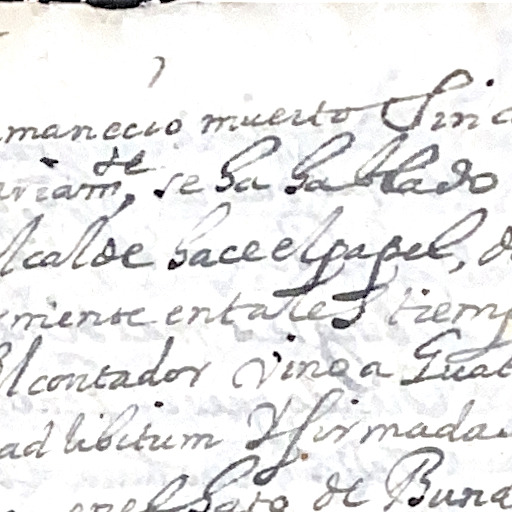 amanecio muerto sin c
ariam.te, se ha hablado
Alcalde hace el papel, d
rmente en tales tiemp
El contador vino a Guat
ad libitum y firmada
en el hato de Buna